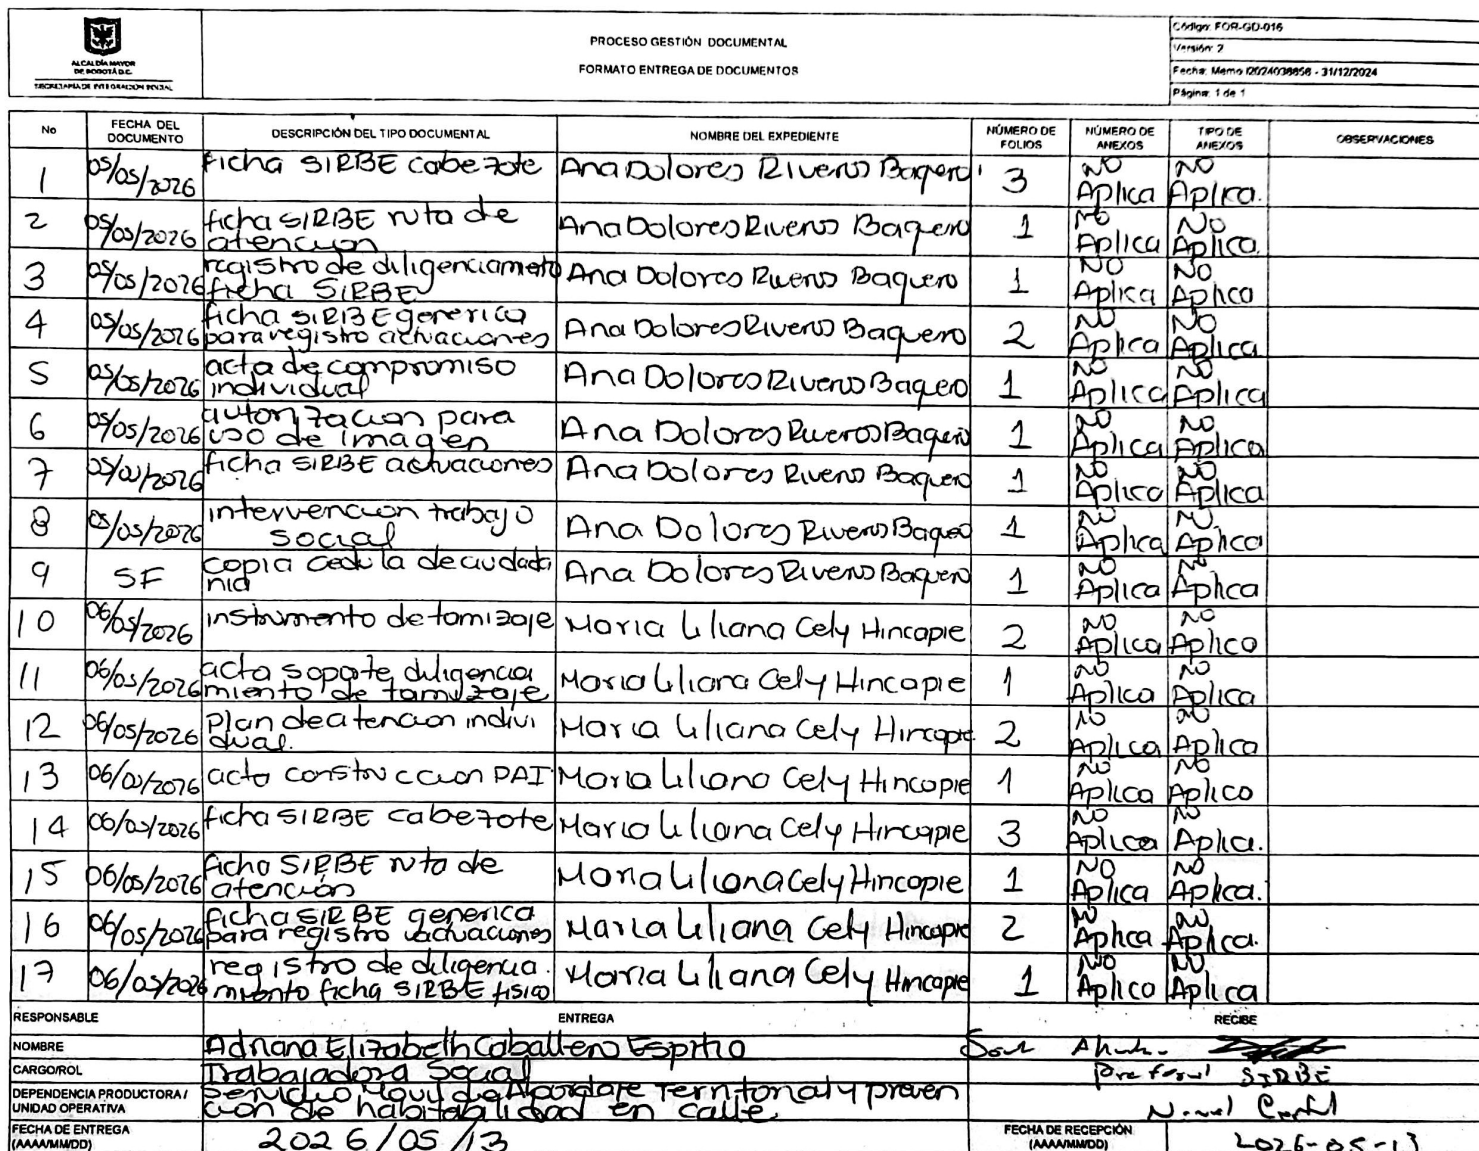 ALCALDÍA MAYOR
DE BOGOTÁ D.C.
SECRETARÍA DE INTEGRACIÓN SOCIAL
PROCESO GESTIÓN DOCUMENTAL
FORMATO ENTREGA DE DOCUMENTOS
Código: FOR-GD-016
Versión: 2
Fecha: Memo I2024038858 - 31/12/2024
Página: 1 de 1
No FECHA DEL DOCUMENTO DESCRIPCIÓN DEL TIPO DOCUMENTAL NOMBRE DEL EXPEDIENTE NÚMERO DE FOLIOS NÚMERO DE ANEXOS TIPO DE ANEXOS OBSERVACIONES
1 05/05/2026 Ficha SIRBE cabezote Ana Dolores Riveros Baquero 3 NO Aplica NO Aplica.
2 05/05/2026 ficha SIRBE ruta de atencion Ana Dolores Riveros Baquero 1 NO Aplica NO Aplica.
3 05/05/2026 registro de diligenciamento ficha SIRBE Ana Dolores Riveros Baquero 1 NO Aplica NO Aplica
4 05/05/2026 ficha SIRBE generica para registro actuaciones Ana Dolores Riveros Baquero 2 NO Aplica NO Aplica
5 05/05/2026 acta de compromiso individual Ana Dolores Riveros Baquero 1 NO Aplica NO Aplica
6 05/05/2026 autorizacion para uso de imagen Ana Dolores Riveros Baquero 1 NO Aplica NO Aplica
7 05/05/2026 ficha SIRBE actuaciones Ana Dolores Riveros Baquero 1 NO Aplica NO Aplica
8 05/05/2026 intervencion trabajo social Ana Dolores Riveros Baquero 1 NO Aplica NO Aplica
9 SF copia cedula de ciudada nia Ana Dolores Riveros Baquero 1 NO Aplica NO Aplica
10 06/05/2026 instrumento de tamizaje Maria Liliana Cely Hincapie 2 NO Aplica NO Aplica
11 06/05/2026 acta soporte diligencia miento de tamizaje Maria Liliana Cely Hincapie 1 NO Aplica NO Aplica
12 06/05/2026 Plan de atencion indivi dual. Maria Liliana Cely Hincapie 2 NO Aplica NO Aplica
13 06/05/2026 acta construccion PAI Maria Liliana Cely Hincapie 1 NO Aplica NO Aplica
14 06/05/2026 ficha SIRBE cabezote Maria Liliana Cely Hincapie 3 NO Aplica NO Aplica.
15 06/05/2026 ficha SIRBE ruta de atención Maria Liliana Cely Hincapie 1 NO Aplica NO Aplica.
16 06/05/2026 ficha SIRBE generica para registro actuaciones Maria Liliana Cely Hincapie 2 NO Aplica NO Aplica.
17 06/05/2026 registro de diligencia. miento ficha SIRBE fisico Maria Liliana Cely Hincapie 1 NO Aplica NO Aplica
RESPONSABLE ENTREGA RECIBE
NOMBRE Adriana Elizabeth Caballero Espitia
CARGO/ROL Trabajadora Social SIRBE
DEPENDENCIA PRODUCTORA / UNIDAD OPERATIVA Servicio Movil de Abordaje Territorial y preven cion de habitabilidad en calle
FECHA DE ENTREGA (AAAA/MM/DD) 2026/05/13 FECHA DE RECEPCIÓN (AAAA/MM/DD) 2026-05-13